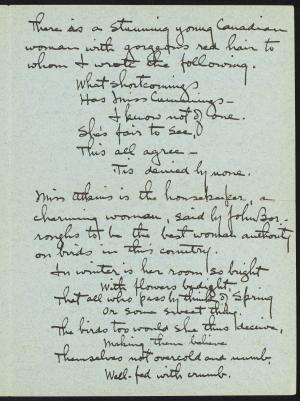 There is a stunning young Canadian
woman with gorgeous red hair to
whom I wrote the following.
What shortcomings
Has Miss Cummings –
I know not of one.
She's fair to see,
This all agree –
Tis denied by none.
Miss Atkins is the housekeeper, a
charming woman, said by John Bur-
roughs to be the best woman authority
on birds in this country.
In winter is her room so bright
With flowers bedight,
That all who pass by think of Spring
Or some sweet thing.
The birds too would she thus deceive,
Making them believe
Themselves not overcold and numb,
Well-fed with crumb.